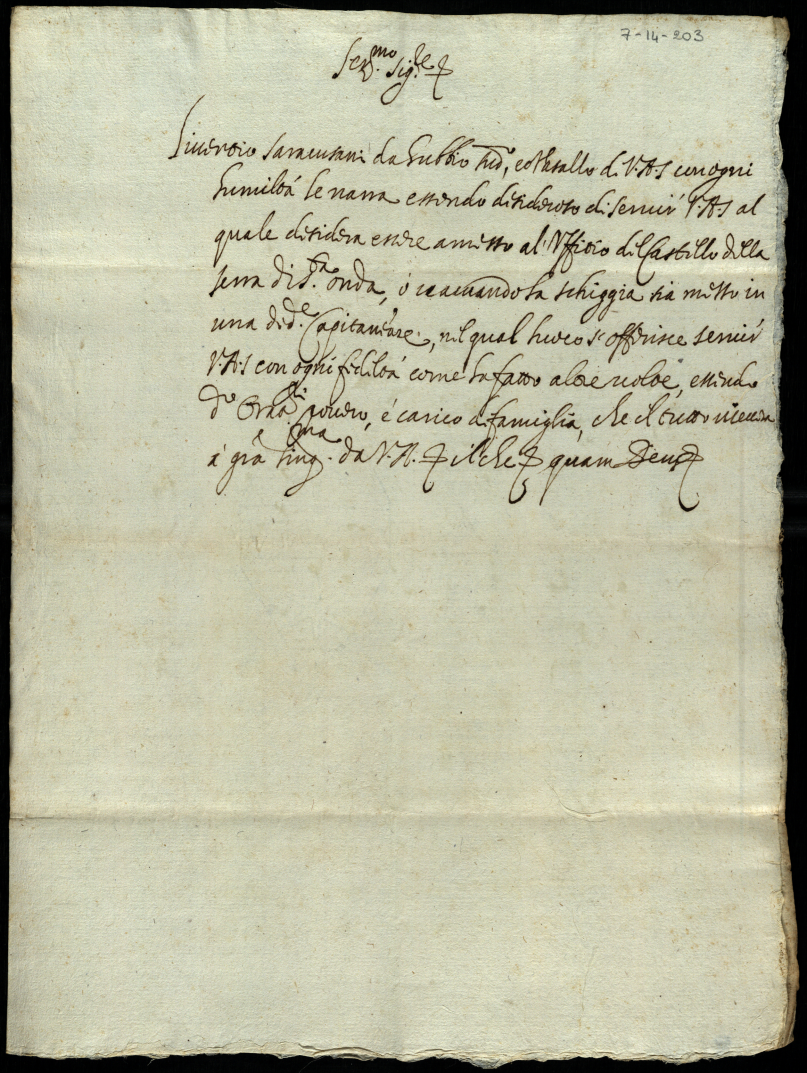 7-14-203
Ser.mo Sig.re
Liveroio Saracusani da Gubbio Sud.o, e Vasallo di V.A.S con ogni
humiltá le narra essendo desideroso di servir V.A.S al
quale desidera essere amesso al Ufficio del Castello della
serra di S.ta onda, ó vacando la schiggia sia messo in
una di d.e Capitanìare, nel qual luoco s'offerisce servir
V.A.S con ogni fideltá come ha fatto altre volte, essendo
d.o Ora.re povero, é carico di famiglia, che il tutto
á grâ sing.ma da V.A. il che quam Deus